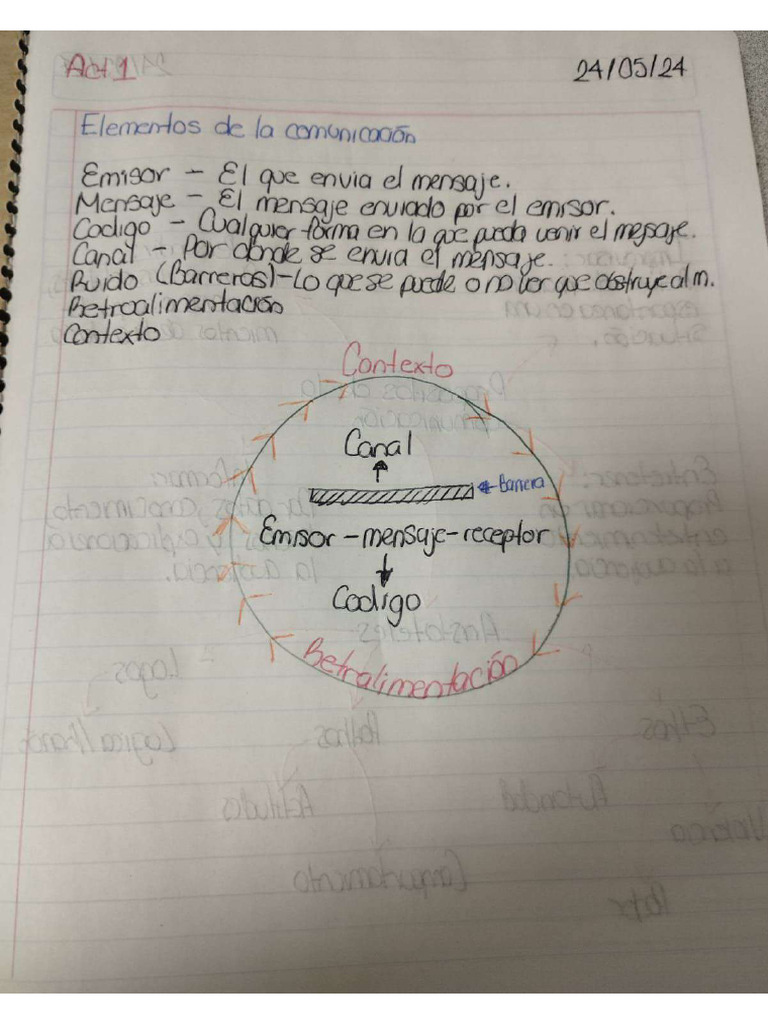 Act 1
24/05/24
Elementos de la comunicación
Emisor - El que envia el mensaje.
Mensaje - El mensaje enviado por el emisor.
Codigo - Cualquier forma en la que pueda venir el mesaje.
Canal - Por donde se envia el mensaje.
Ruido (Barreras) - Lo que se puede o no ver que obstruye al m.
Retroalimentación
Contexto
Contexto
Canal
Barrera
Emisor - mensaje - receptor
Codigo
Retralimentación